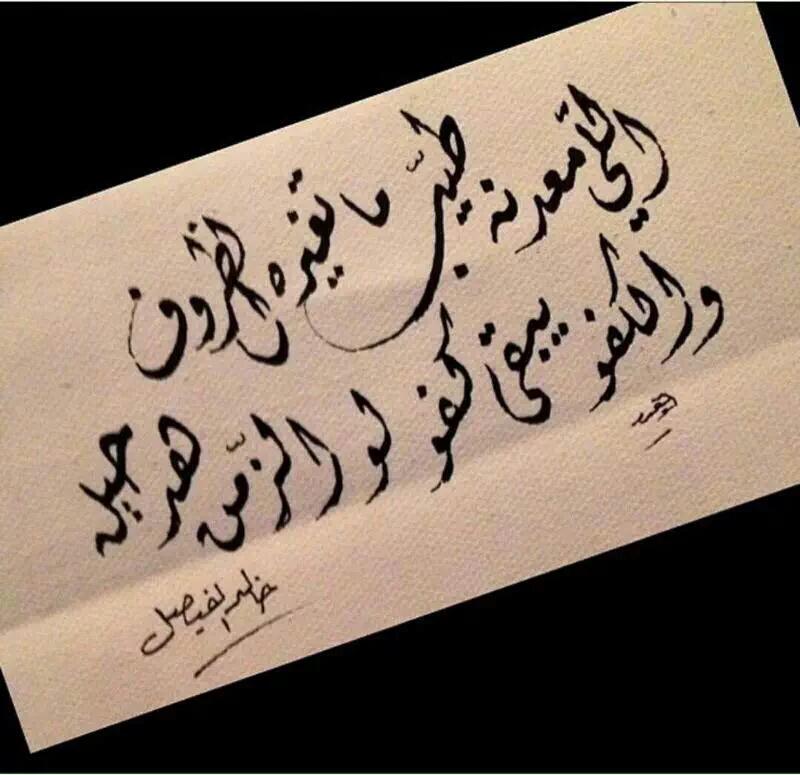 اللي معدنه طيّب ما تغيره الظروف
والكفو يبقى كفو لو الزمّن هد حيله
خالد الفيصل